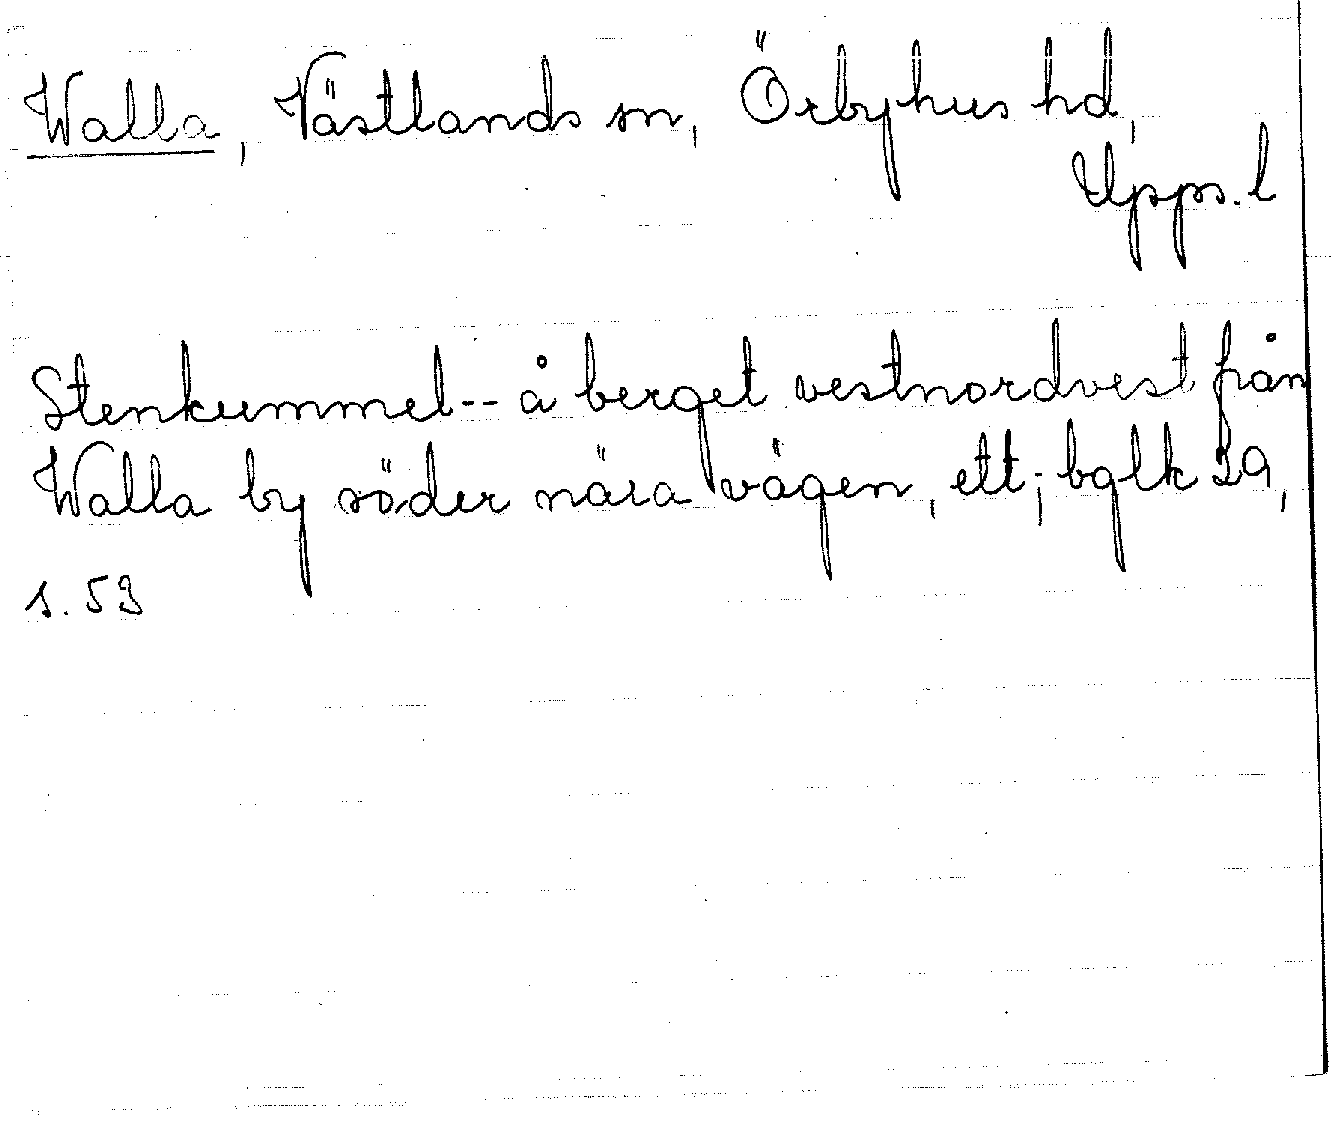 Walla, Västlands sn, Örbyhus hd,
Upps. l
Stenkummel-- å berget vestnordvest från
Walla by söder nära vägen, ett; bglk 29,
s. 53